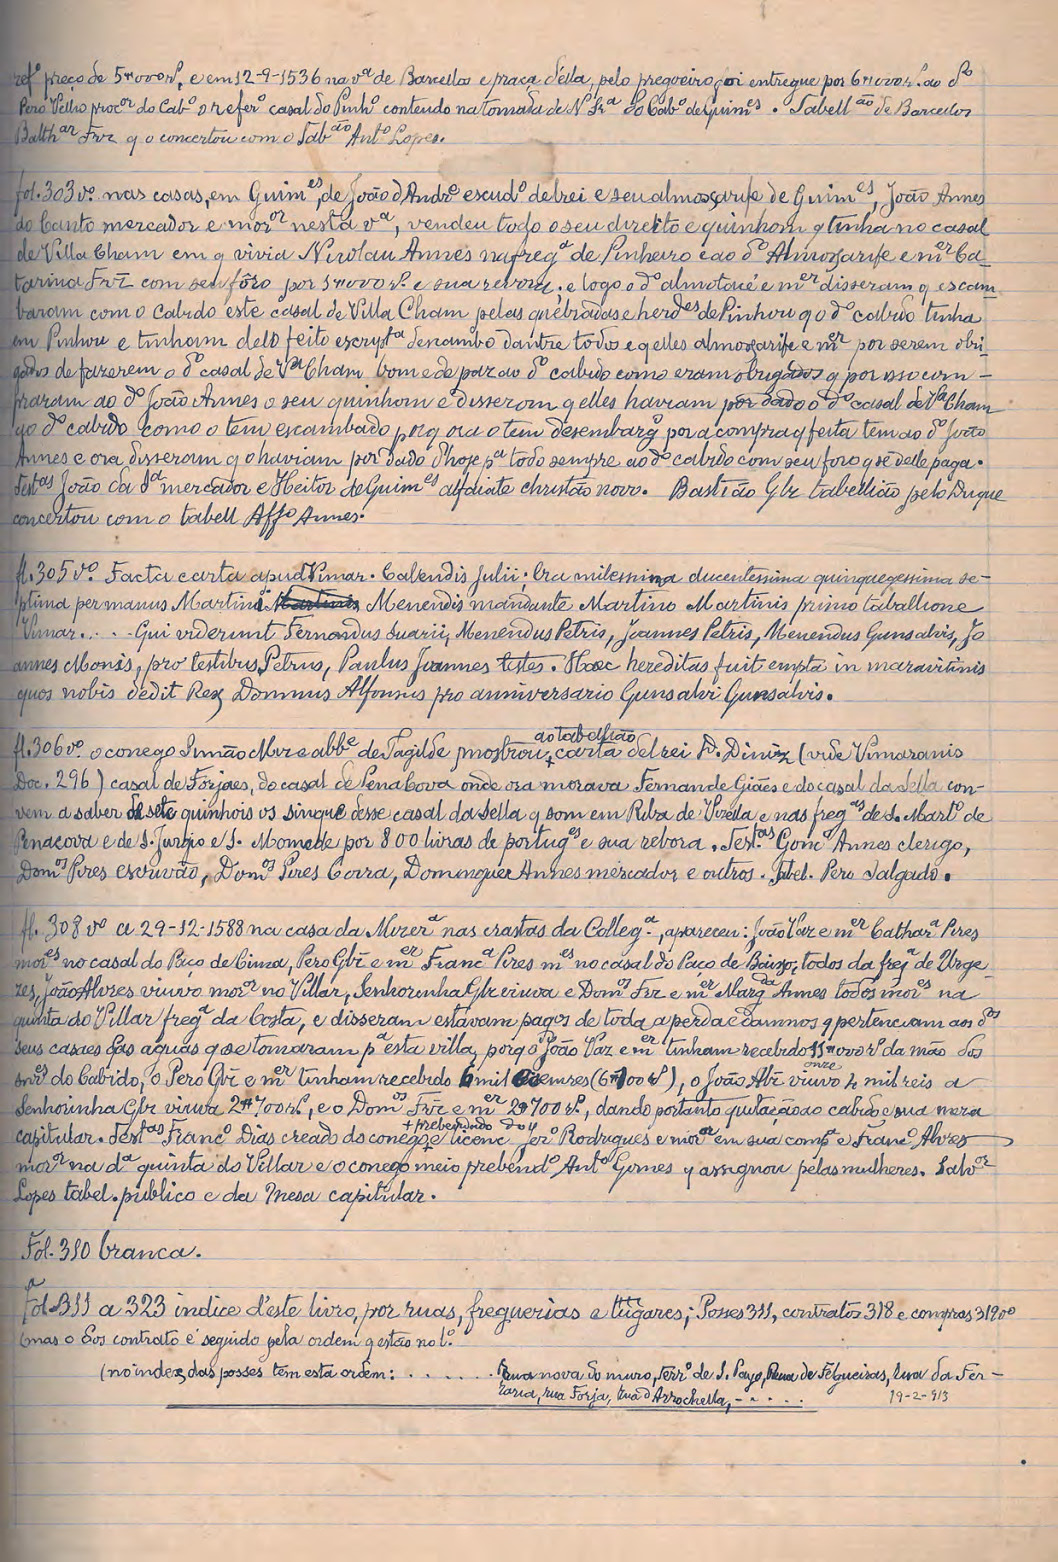 refº preço de 5#000 rs, e em 12-9-1536 na vª de Barcellos e praça d'ella, pelo pregoeiro foi entregue por 6#000 rs. ao dº
Pero Velho procºr do Cabº o referº casal do Pinhº contendo na tomada de N. Srª do Cabº de Guimes. Tabellão de Barcelos
Balthar Frz q o concertou com o Tabão Antº Lopes.
fol. 303 vº. nas casas, em Guimes, de João d'Andrº escudº delrei e seu almoxarife de Guimes, João Annes
do Canto mercador e moror nesta vª, vendeu todo o seu direito e quinhom q tinha no casal
de Villa Cham em q vivia Nicolau Annes na fregª de Pinheiro e ao dº Almoxarife e mer Ca-
tarina Frz com seu fôro por 5#000 rs. e sua revora. e logo o dº almotacé e mer disseram q escam
baram com o Cabido este casal de Villa Cham pelas quebradas e herdes de Pinhou q o dº cabido tinha
em Pinhou e tinham delo feito escryptª de cambo dantre todos e q elles almoxarife e mer por serem obri-
gados de fazerem o dº casal de Vª Cham bom e de paz ao dº cabido como eram obrigados q por isso com-
praram ao dº João Annes o seu quinhom e disserom q elles haviam por dado o dº casal de Vª Cham
ao dº cabido como o tem escambado porq ora o tem desembargº por a compra q feita tem ao dº João
Annes e ora disseram q o haviam por dado d'hoje pª todo sempre ao dº cabido com seu foro q se delle paga.
Testas João da dª mercador e Heitor de Guimes alfaiate christão novo. Bastião Glz tabellião pelo Duque
concertou com o tabell Affº Annes.
fl. 305 vº. Facta carta apud Vimar. Calendis Julii; Era milessima ducentessima quinquegessima se-
ptima per manus Martini Martinis Menendis mandante Martino Martinis primo taballione
Vimar..... Qui viderunt Fernandus Suarii, Menendus Petris, Joannes Petris, Menendus Gunsalvis, Jo
annes Monis, pro testibus Petrus, Paulus Joannes testes. Haec hereditas fuit empta in maravitinis
quos nobis dedit Rex Domnus Alfonsus pro anniversario Gunsalvi Gunsalvis.
ao tabalião
fl. 306 vº. o conego Simão Mvz e abbe de Tagilde mostrou + carta delrei D. Diniz (vide Vimaranis
Doc. 296) casal de Forjaes, do casal de Pena Cova onde ora morava Fernande Giães e do casal da Sella con-
vem a saber de sete quinhois os sinque desse casal da Sella q som em Riba de Vizella e nas fregas de S. Martº de
Penacova e de S. Jurgio e S. Momede por 800 livras de portugs e sua rebora. Testas Gomº Annes clerigo,
Domos Pires escrivão, Domos Pires Corra, Dominguez Annes mercador e outros. Tabel. Pero Salgado.
fl. 308 vº a 29-12-1588 na casa da Mizerª nas crastas da Collegª, apareceu: João Vaz e mer Catharª Pires
mores no casal do Paço de Cima, Pero Glz e mer Francª Pires mes no casal do Paço de Baixo, todos da fregª de Urge-
zes, João Alvres viuvo moror no Villar, Senhorinha Glz viuva e Domos Frz e mer Margda Annes todos mores na
quinta do Villar fregª da Costa, e disseram estavam pagos de toda a perda e damnos q pertenciam aos dos
seus casaes das aguas q se tomaram pª esta villa, porq o João Vaz e mer tinham recebido 11#000 rs. da mão dos
onze
snrs do Cabido, o Pero Glz e mer tinham recebido 6 mil cem res (6#100 rs), o João Alz viuvo 4 mil reis a
Senhorinha Glz viuva 2#700 rs, e o Domos Frz e mer 2#700 rs, dando portanto quitação ao cabido e sua meza
+ prebendado do q
capitular. Testas Francº Dias creado do conego + e licenc. Jerº Rodrigues e moror em sua compª e Francº Alvres
moror na dª quinta do Villar e o conego meio prebendº Antº Gomes q assignou pelas mulheres. Salvor
Lopes tabel. público e da Mesa capitular.
Fol. 310 branca.
Fol. 311 a 323 indice d'este livro, por ruas, freguezias e lugares; Posses 311, contratos 318 e compras 319 vº
(mas o dos contrato é seguido pela ordem q estão no lº.
(no index das posses tem esta ordem: . . . . . . . Rua nova do muro, Terrº de S. Payo, Rua de Felgueiras, Rua da Fer-
raria, rua Forja, Rua d'Arrochella, - - . . .
19-2-913